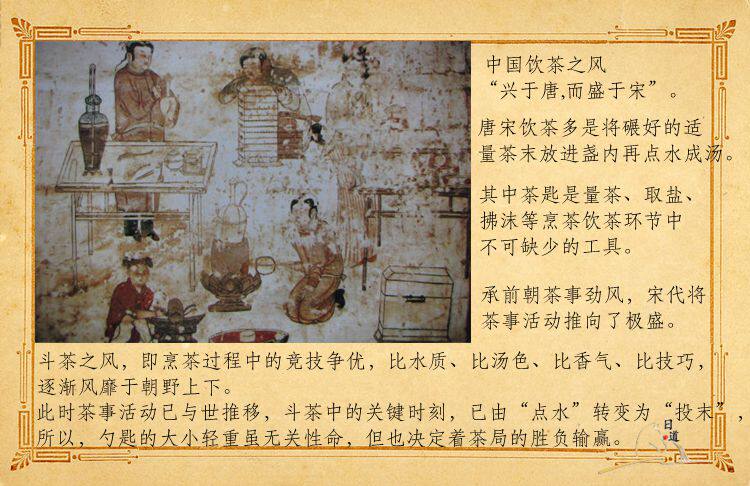 中国饮茶之风
“兴于唐,而盛于宋”。
唐宋饮茶多是将碾好的适
量茶末放进盏内再点水成汤。
其中茶匙是量茶、取盐、
拂沫等烹茶饮茶环节中
不可缺少的工具。
承前朝茶事劲风，宋代将
茶事活动推向了极盛。
斗茶之风，即烹茶过程中的竞技争优，比水质、比汤色、比香气、比技巧，
逐渐风靡于朝野上下。
此时茶事活动已与世推移，斗茶中的关键时刻，已由“点水”转变为“投末”，
所以，勺匙的大小轻重虽无关性命，但也决定着茶局的胜负输赢。
日道